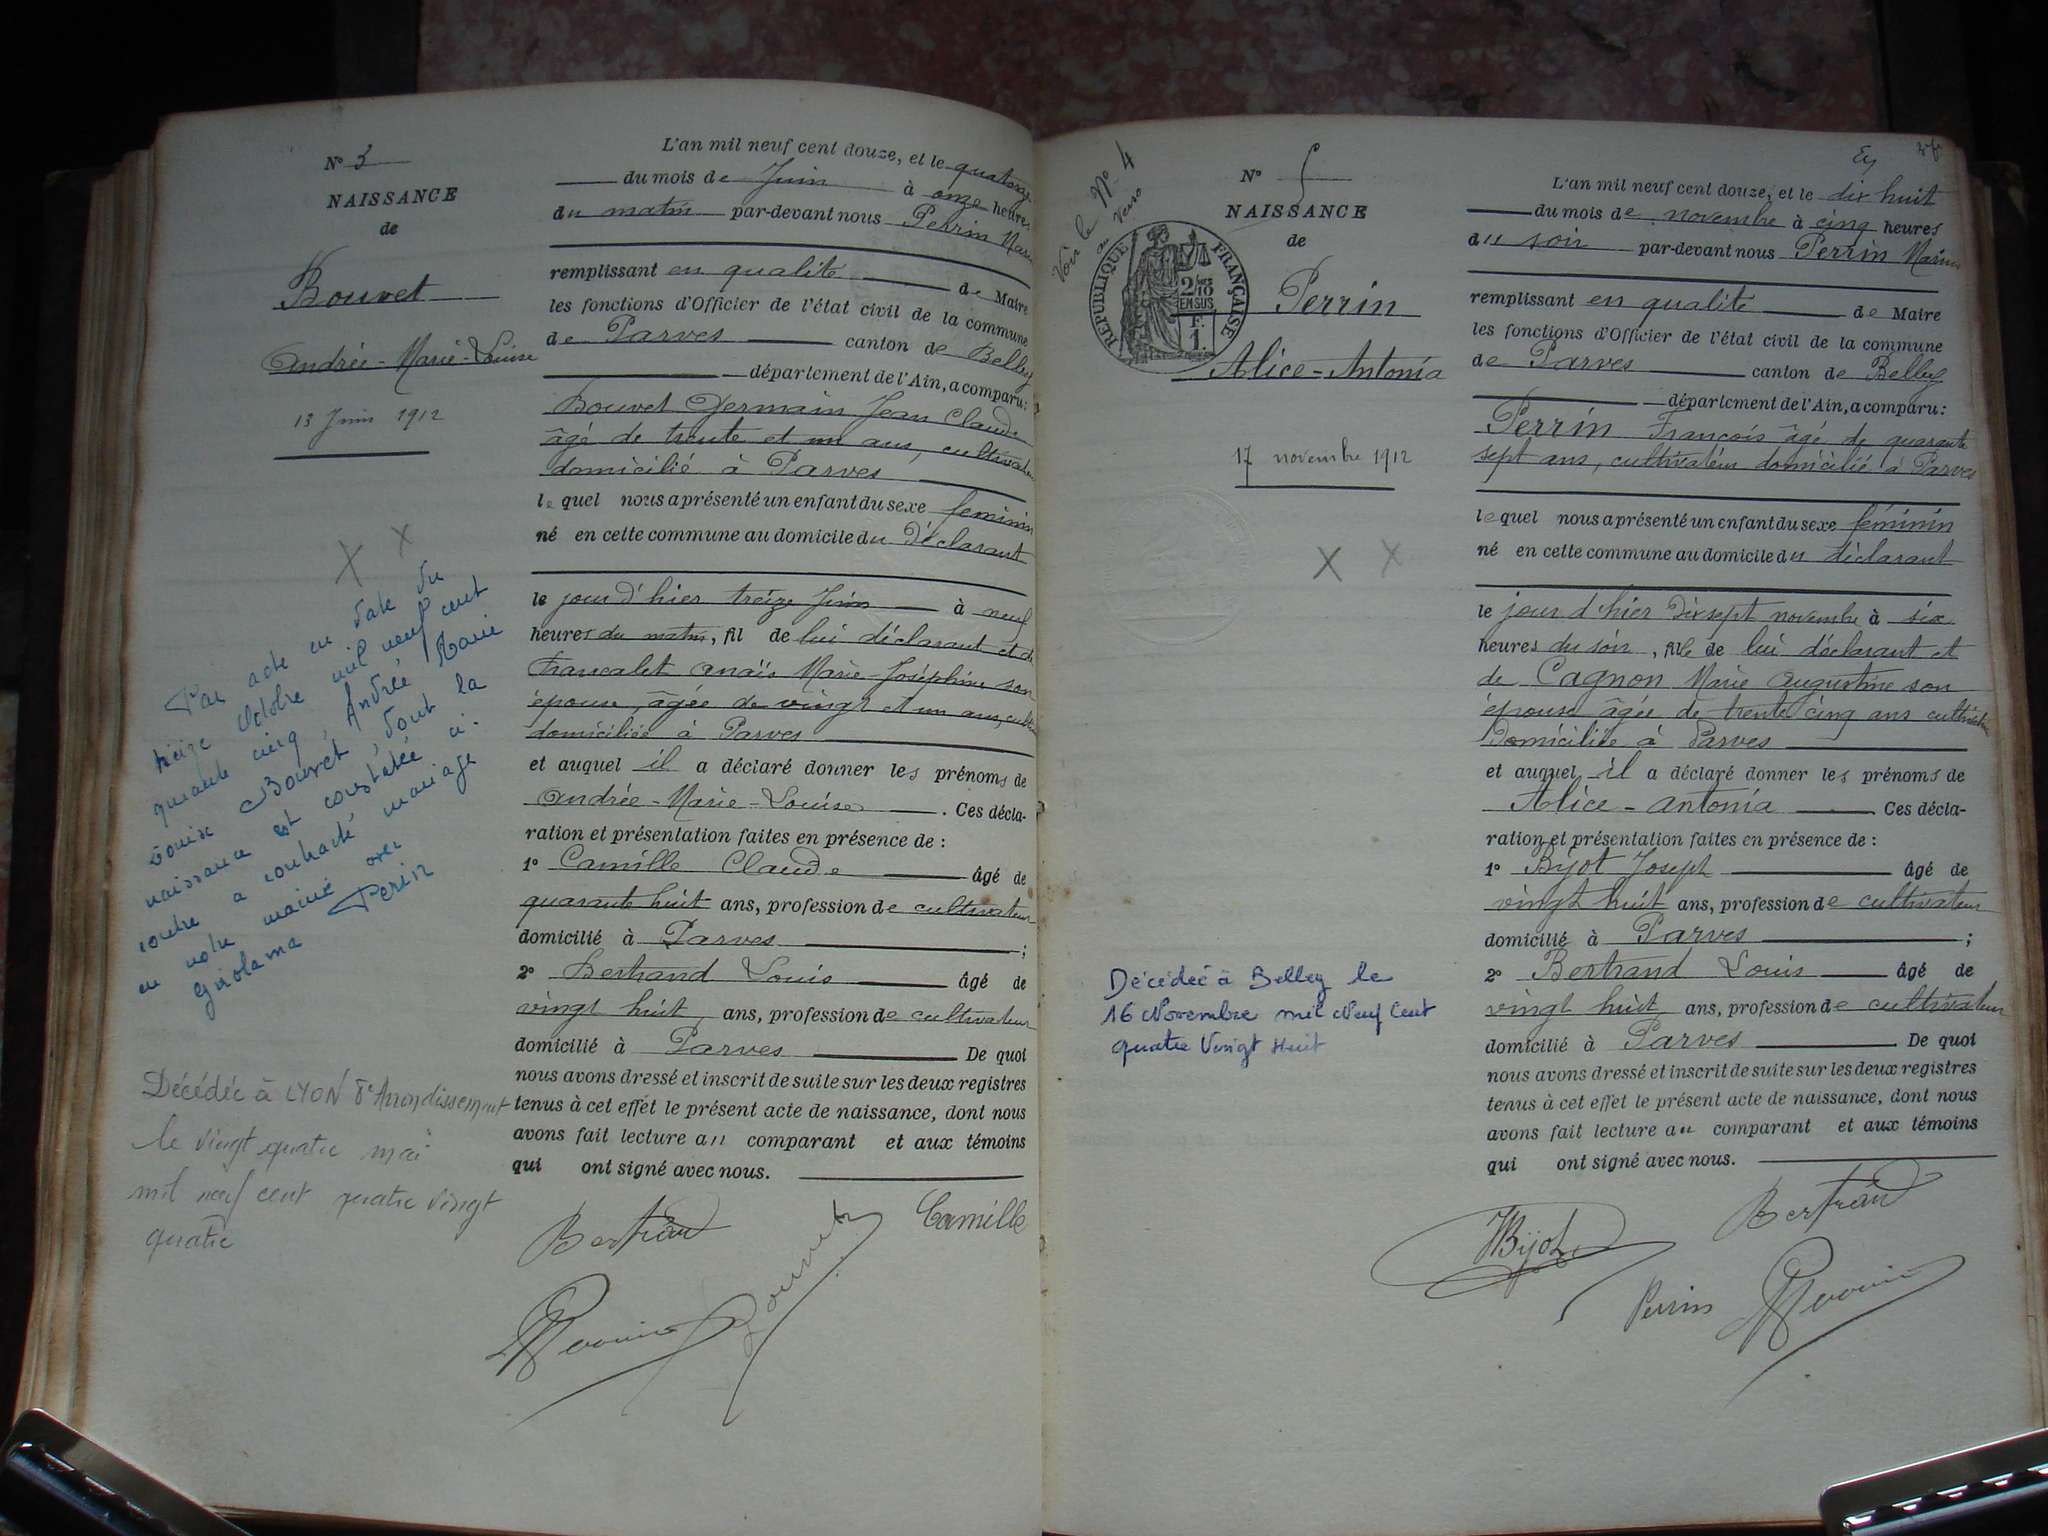 N° 3
NAISSANCE
de
Bouvet
Andrée-Marie-Louise
13 Juin 1912
X X
Par acte en date du
treize Octobre mil neuf cent
quarante cinq, Andrée Marie
Louise Bouvet, dont la
naissance est constatée ci-
contre a contracté mariage
en notre mairie avec
Perin
Girolama
Décédée à LYON 8e Arrondissement
le vingt quatre mai
mil neuf cent quatre vingt
quatre
L'an mil neuf cent douze, et le quatorze
du mois de Juin à onze heures
du matin par-devant nous Perrin
remplissant en qualité de Maire
les fonctions d'Officier de l'état civil de la commune
de Parves canton de Belley
département de l'Ain, a comparu:
Bouvet Germain Jean Claude
âgé de trente et un ans, cultivateur
domicilié à Parves
lequel nous a présenté un enfant du sexe feminin
né en cette commune au domicile du Déclarant
le jour d'hier treize Juin à neuf
heures du matin, fil de lui déclarant et de
Francalet Anaïs Marie Joséphine son
épouse, âgée de vingt et un ans,
domiciliée à Parves
et auquel il a déclaré donner les prénoms de
Andrée-Marie-Louise. Ces décla-
ration et présentation faites en présence de :
1° Camille Claude âgé de
quarante huit ans, profession de cultivateur
domicilié à Parves ;
2° Bertrand Louis âgé de
vingt huit ans, profession de cultivateur
domicilié à Parves De quoi
nous avons dressé et inscrit de suite sur les deux registres
tenus à cet effet le présent acte de naissance, dont nous
avons fait lecture au comparant et aux témoins
qui ont signé avec nous.
Bertrand Bouvet Camille
Voir le N° 4
au verso
N° 5
NAISSANCE
de
RÉPUBLIQUE FRANÇAISE
2/10
EN SUS
F.
1.
Perrin
Alice-Antonia
17 novembre 1912
X X
Décédée à Belley le
16 Novembre mil Neuf Cent
quatre Vingt Huit
L'an mil neuf cent douze, et le dix huit
du mois de novembre à cinq heures
du soir par-devant nous Perrin Marius
remplissant en qualité de Maire
les fonctions d'Officier de l'état civil de la commune
de Parves canton de Belley
département de l'Ain, a comparu:
Perrin François âgé de quarante
sept ans, cultivateur domicilié à Parves
lequel nous a présenté un enfant du sexe féminin
né en cette commune au domicile du déclarant
le jour d'hier Dixsept novembre à six
heures du soir, fille de lui déclarant et
de Cagnon Marie Augustine son
épouse âgée de trente cinq ans
Domiciliée à Parves
et auquel il a déclaré donner les prénoms de
Alice-Antonia Ces décla-
ration et présentation faites en présence de :
1° Bijot Joseph âgé de
vingt huit ans, profession de cultivateur
domicilié à Parves ;
2° Bertrand Louis âgé de
vingt huit ans, profession de cultivateur
domicilié à Parves De quoi
nous avons dressé et inscrit de suite sur les deux registres
tenus à cet effet le présent acte de naissance, dont nous
avons fait lecture au comparant et aux témoins
qui ont signé avec nous.
Bijot Bertrand
Perrin